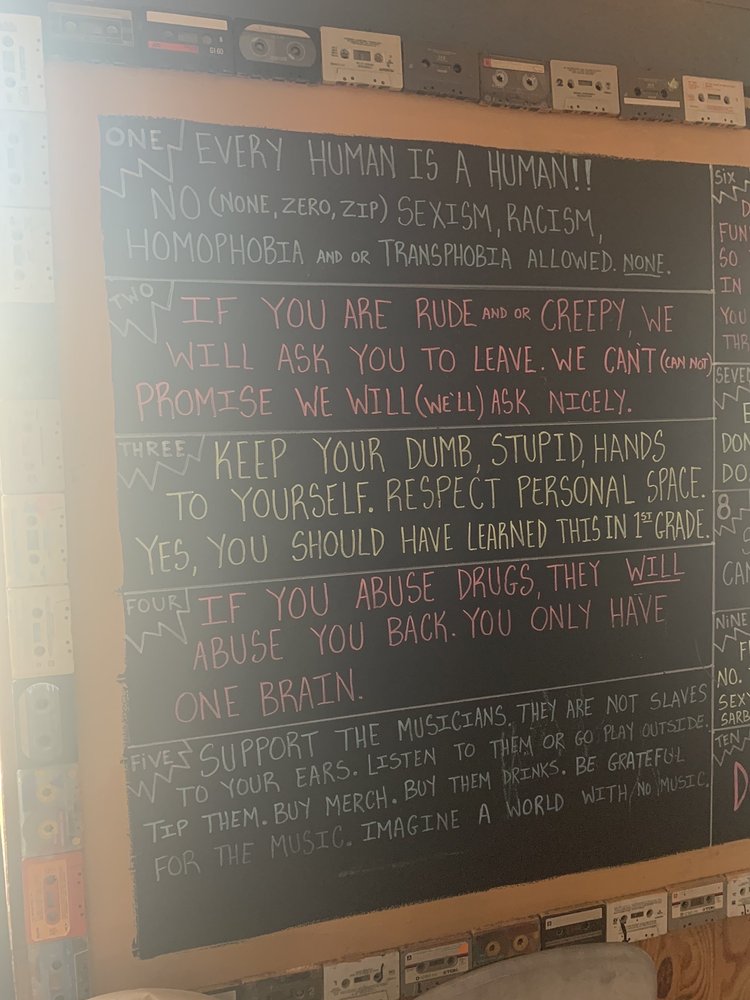 ONE
EVERY HUMAN IS A HUMAN!!
NO (NONE, ZERO, ZIP) SEXISM, RACISM,
HOMOPHOBIA AND OR TRANSPHOBIA ALLOWED. NONE.
TWO
IF YOU ARE RUDE AND OR CREEPY, WE
WILL ASK YOU TO LEAVE. WE CAN'T (CAN NOT)
PROMISE WE WILL (WE'LL) ASK NICELY.
THREE
KEEP YOUR DUMB, STUPID, HANDS
TO YOURSELF. RESPECT PERSONAL SPACE.
YES, YOU SHOULD HAVE LEARNED THIS IN 1ST GRADE.
FOUR
IF YOU ABUSE DRUGS, THEY WILL
ABUSE YOU BACK. YOU ONLY HAVE
ONE BRAIN.
FIVE
SUPPORT THE MUSICIANS. THEY ARE NOT SLAVES
TO YOUR EARS. LISTEN TO THEM OR GO PLAY OUTSIDE.
TIP THEM. BUY MERCH. BUY THEM DRINKS. BE GRATEFUL
FOR THE MUSIC. IMAGINE A WORLD WITH NO MUSIC.
SIX
D
FUN
SO
IN
YOU
THR
SEVEN
DON
DO
8
CAN
NINE
F
NO.
SEX
SARB
TEN
D